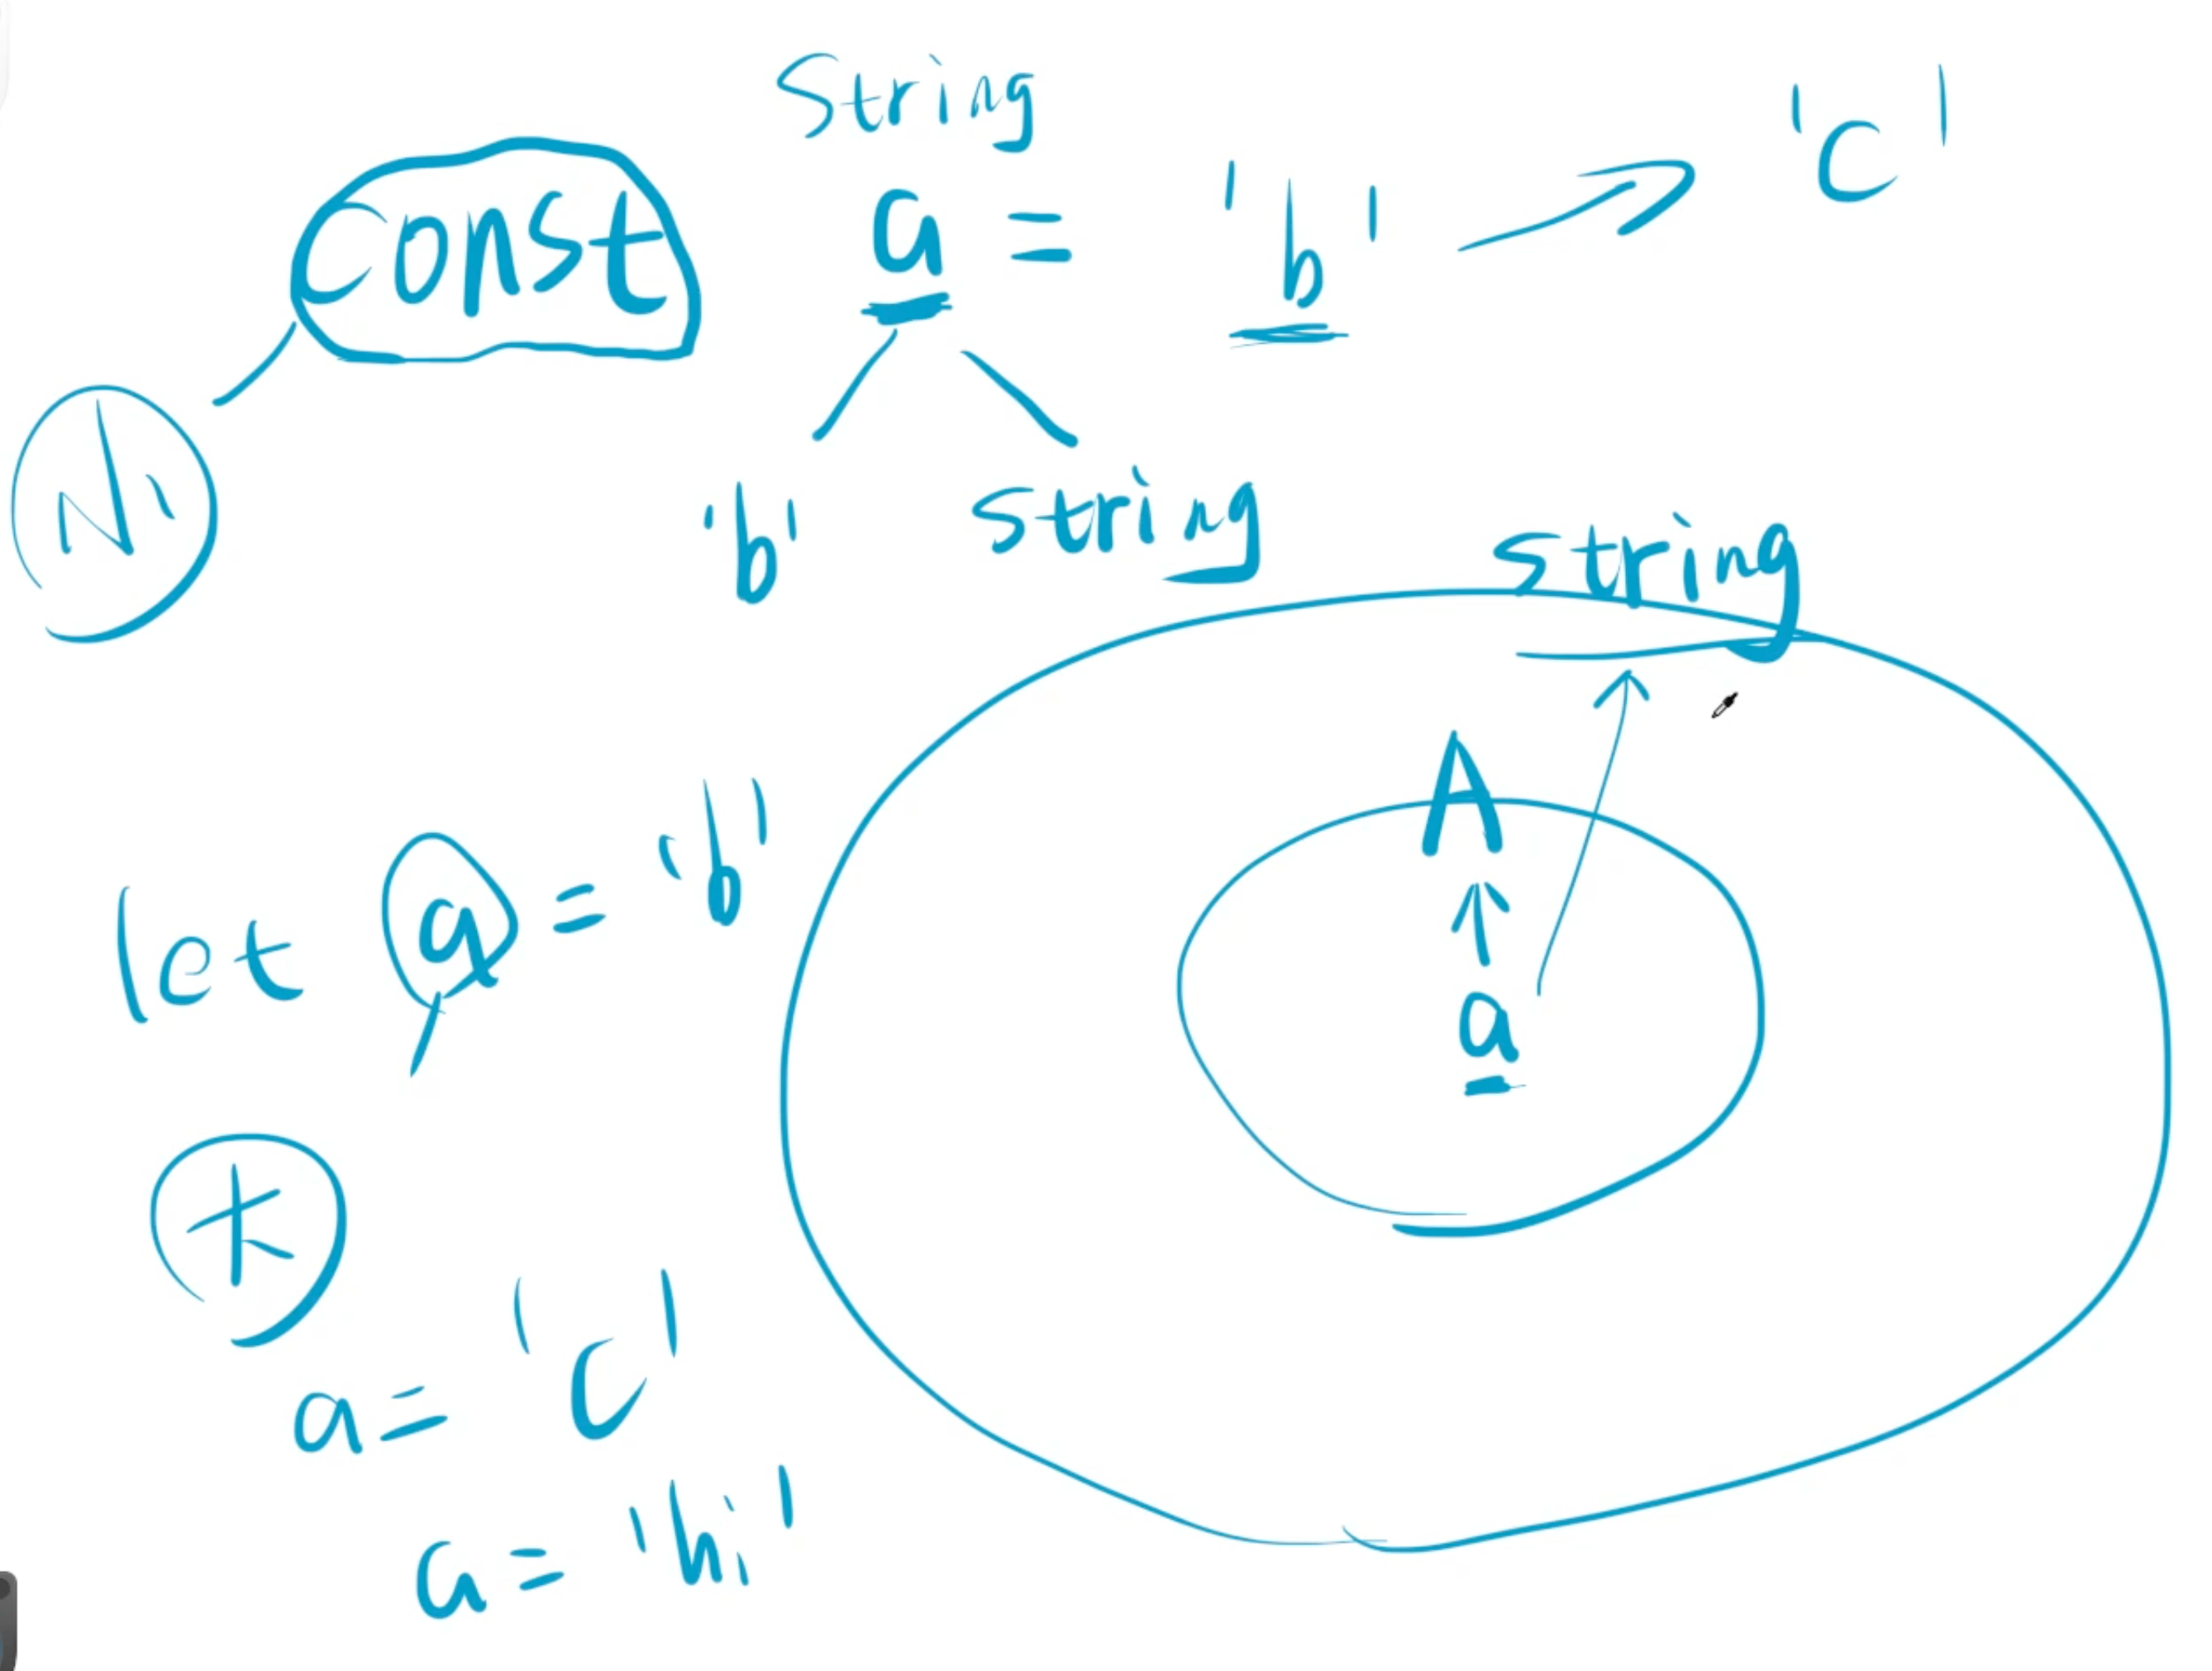 String
const a = 'b' 'c'
'b' string
string
A
a
let a = 'b'
大
a = 'c'
a = 'hi'